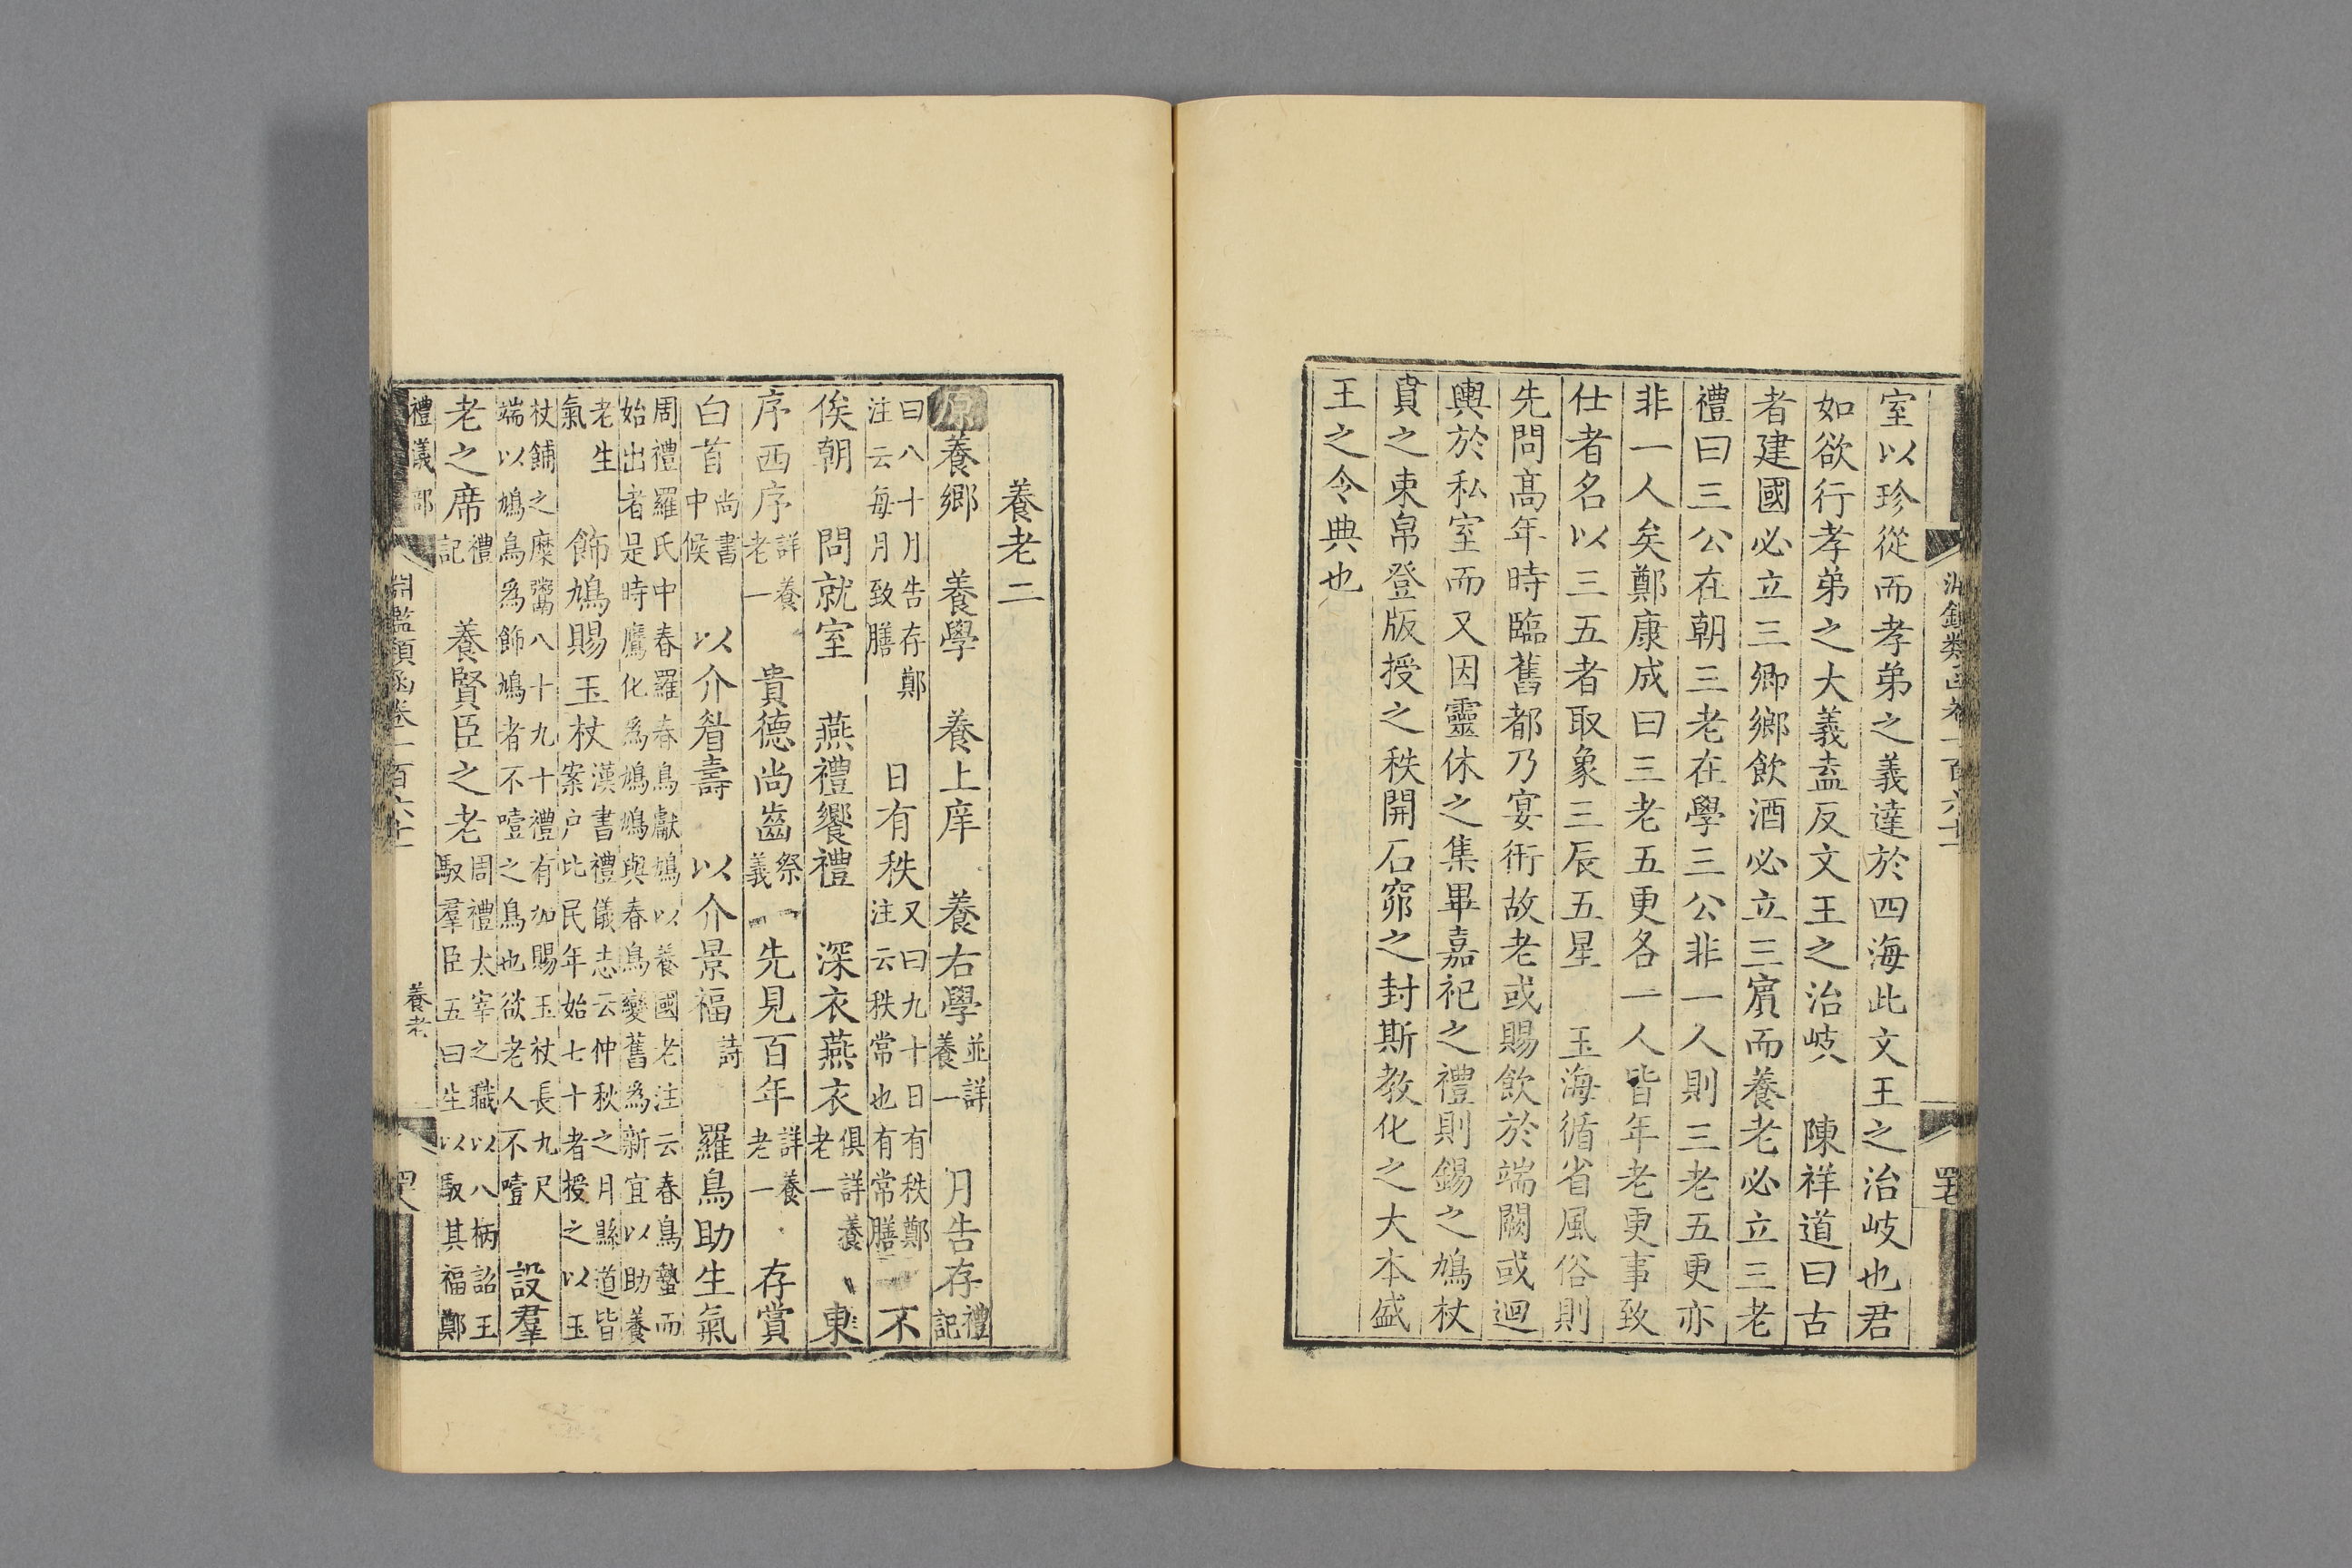 室以珍從而孝弟之義達於四海此文王之治岐也君
如欲行孝弟之大義盍反文王之治岐　陳祥道曰古
者建國必立三卿鄉飲酒必立三賓而養老必立三老
禮曰三公在朝三老在學三公非一人則三老五更亦
非一人矣鄭康成曰三老五更各一人皆年老更事致
仕者名以三五者取象三辰五星　玉海循省風俗則
先問高年時臨舊都乃宴衎故老或賜飲於端闕或迴
輿於私室而又因靈休之集畢嘉祀之禮則錫之鳩杖
賁之束帛登版授之秩開石窌之封斯教化之大本盛
王之令典也
養老二
原養鄉　養學　養上庠　養右學並詳養一　月告存禮記
曰八十月告存鄭注云每月致膳　日有秩又曰九十日有秩鄭注云秩常也有常膳　不
俟朝　問就室　燕禮饗禮　深衣燕衣俱詳養老一　東
序西序詳養老一　貴德尚齒祭義　先見百年詳養老一　存賞
白首尚書中候　以介眉壽　以介景福詩　羅鳥助生氣
周禮羅氏中春羅春鳥獻鳩以養國老注云春鳥蟄而始出者是時鷹化爲鳩鳩與春鳥變舊爲新宜以助養
老生氣　飾鳩賜玉杖漢書禮儀志云仲秋之月縣道皆案户比民年始七十者授之以玉
杖餔之糜鬻八十九十禮有加賜玉杖長九尺端以鳩鳥爲飾鳩者不噎之鳥也欲老人不噎　設羣
老之席禮記　養賢臣之老周禮太宰之職以八柄詔王馭羣臣五曰生以馭其福鄭
禮儀部　淵鑑類函卷一百六十　養老